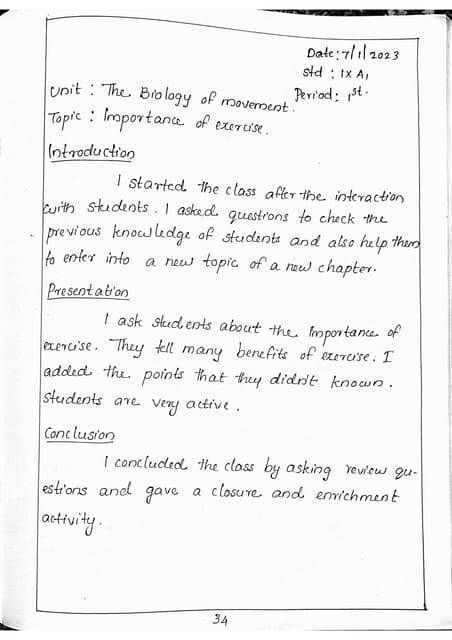 Date: 7/1/2023
Std : IX A1
Unit : The Biology of movement.
Period: 1st.
Topic : Importance of exercise.
Introduction
I started the class after the interaction
with students. I asked questions to check the
previous knowledge of students and also help them
to enter into a new topic of a new chapter.
Presentation
I ask students about the Importance of
exercise. They tell many benefits of exercise. I
added the points that they didn't known.
Students are very active.
Conclusion
I concluded the class by asking review qu-
estions and gave a closure and enrichment
activity.
34